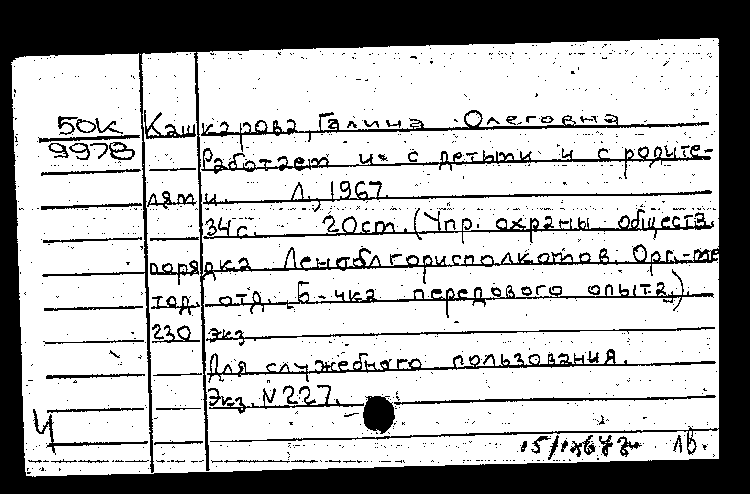 50к Кашкарова, Галина Олеговна
9978 Работает и= с детьми и с родите-
лями. Л., 1967.
34с. 20см. (Упр. охраны обществ.
порядка Леноблгорисполкомов. Орг.-ме
тод. отд. Б-чка передового опыта.)
230 экз.
Для служебного пользования.
Экз. N 227.
Ч
лв.